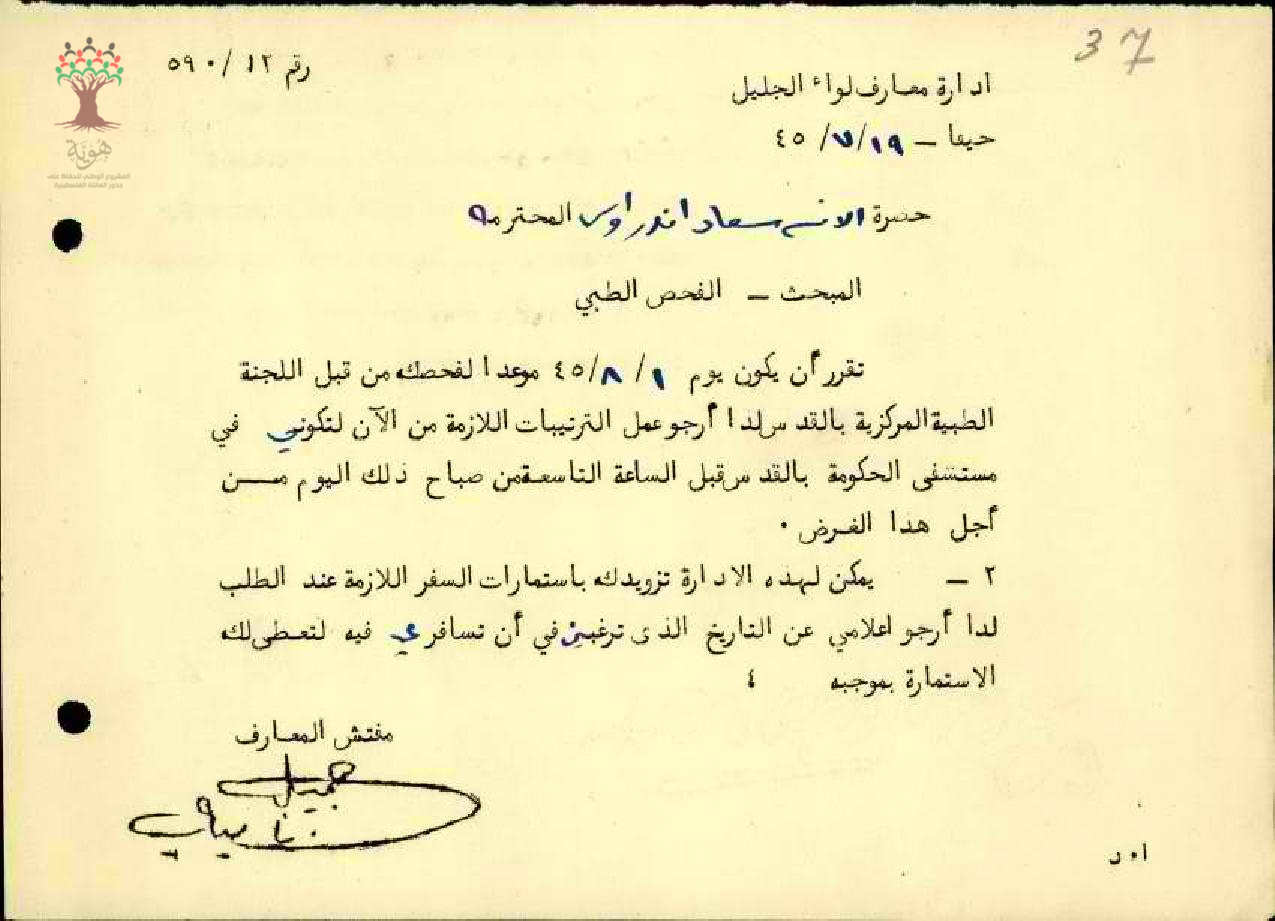 37
رقم ١٢/ ٥٩٠
هُوِيَّة
المشروع الوطني للحفاظ على
جذور العائلة الفلسطينية
ادارة معارف لواء الجليل
حيفا – ١٩/ ٧/ ٤٥
حضرة الانسه سعاد اندراوس المحترمه
المبحث – الفحص الطبي
تقرر أن يكون يوم ١/ ٨/ ٤٥ موعدا لفحصك من قبل اللجنة
الطبية المركزية بالقدس لذا أرجو عمل الترتيبات اللازمة من الآن لتكوني في
مستشفى الحكومة بالقدس قبل الساعة التاسعة من صباح ذلك اليوم مــن
أجل هذا الغرض ٠
٢ – يمكن لهذه الادارة تزويدك باستمارات السفر اللازمة عند الطلب
لذا أرجو اعلامي عن التاريخ الذى ترغبين في أن تسافري فيه لتعطى لك
الاستمارة بموجبه ٤
مفتش المعارف
جميل
ا٠د